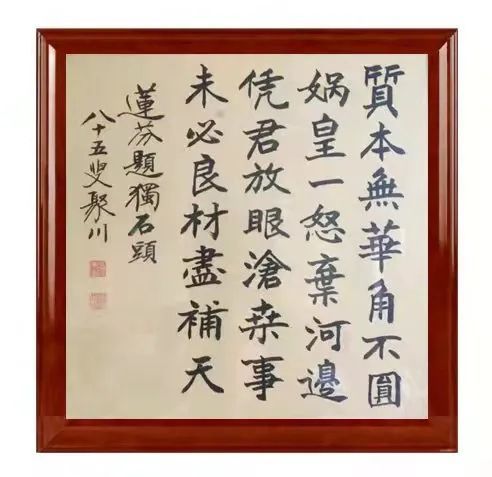 質本無華角不圓
媧皇一怒棄河邊
凭君放眼滄桒事
未必良材盡補天
蓮芬題獨石頭
八十五叟聚川